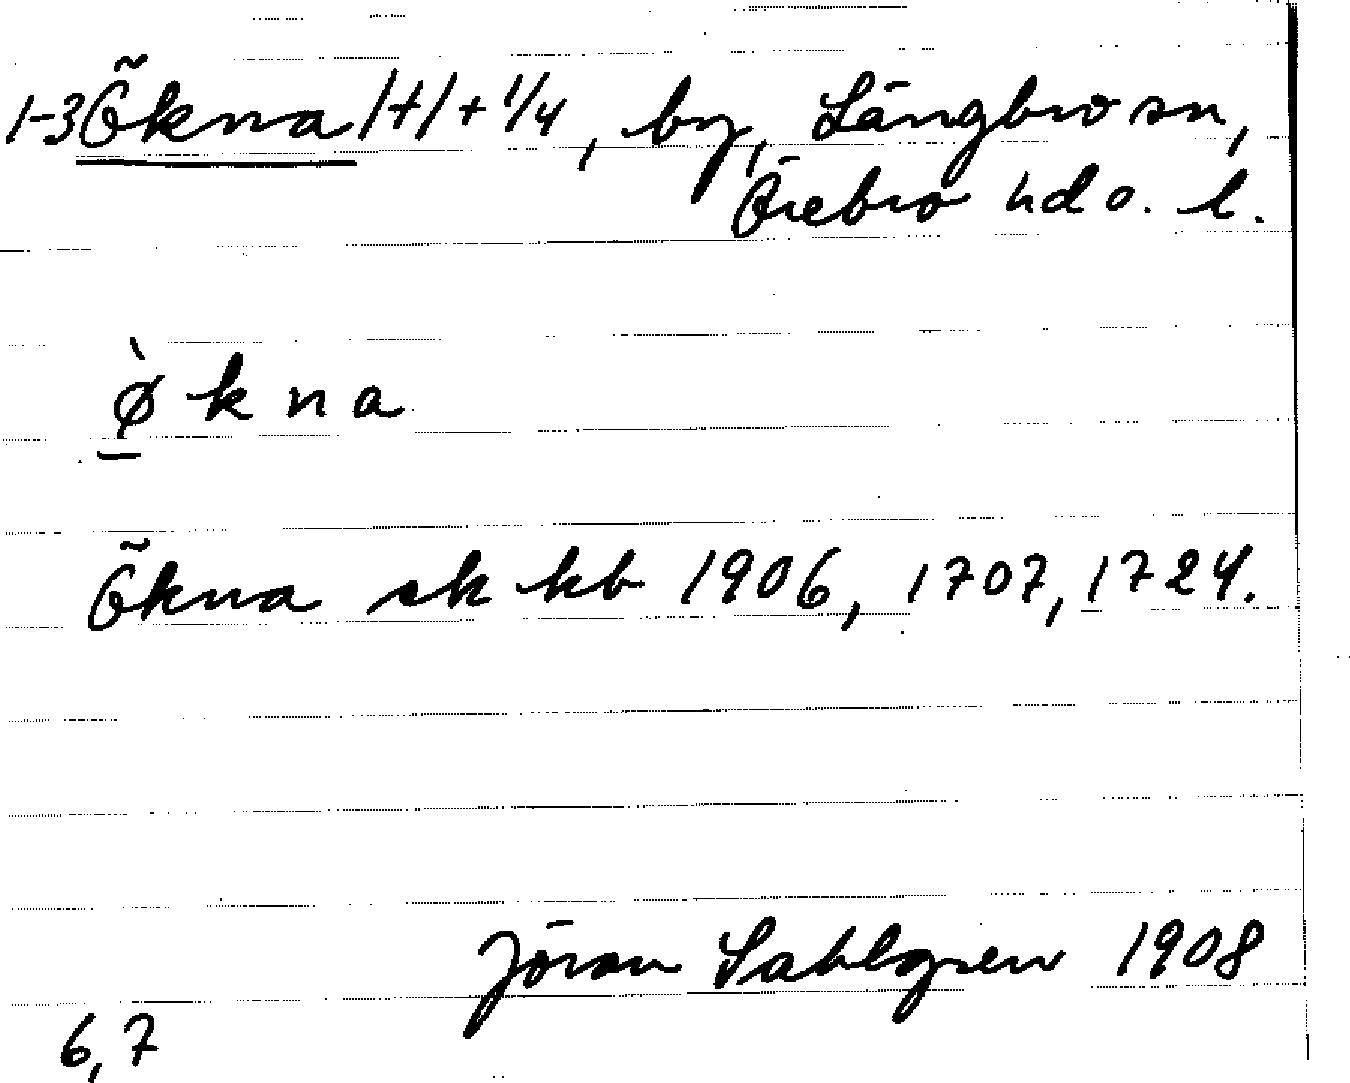 1-3 Økna /+/ + 1/4, by, Längbro sn,
Örebro hd o. l.
ø̀ k n a
Ökna sk kb 1906, 1707, 1724.
Jöran Sahlgren 1908
6,7